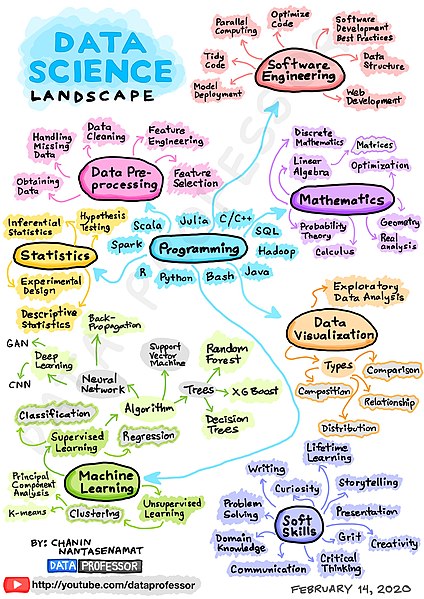 DATA
SCIENCE
LANDSCAPE
Parallel
Computing
Optimize
Code
Software
Development
Best Practices
Tidy
Code
Software
Engineering
Data
Structure
Model
Deployment
Web
Development
Handling
Missing
Data
Data
Cleaning
Feature
Engineering
Obtaining
Data
Data Pre-
processing
Feature
Selection
Discrete
Mathematics
Matrices
Linear
Algebra
Optimization
Mathematics
Probability
Theory
Geometry
Calculus
Real
analysis
Inferential
Statistics
Hypothesis
Testing
Statistics
Experimental
Design
Descriptive
Statistics
Scala
Julia
C/C++
SQL
Spark
Programming
Hadoop
R
Python
Bash
Java
Exploratory
Data Analysis
Data
Visualization
Types
Comparison
Composition
Relationship
Distribution
Back-
Propagation
GAN
Deep
Learning
Support
Vector
Machine
Random
Forest
CNN
Neural
Network
Trees
XG Boost
Classification
Algorithm
Decision
Trees
Supervised
Learning
Regression
Principal
Component
Analysis
Machine
Learning
K-means
Clustering
Unsupervised
Learning
Lifetime
Learning
Writing
Curiosity
Storytelling
Problem
Solving
Soft
Skills
Presentation
Domain
Knowledge
Grit
Creativity
Communication
Critical
Thinking
BY: CHANIN
NANTASENAMAT
DATA PROFESSOR
http://youtube.com/dataprofessor
FEBRUARY 14, 2020